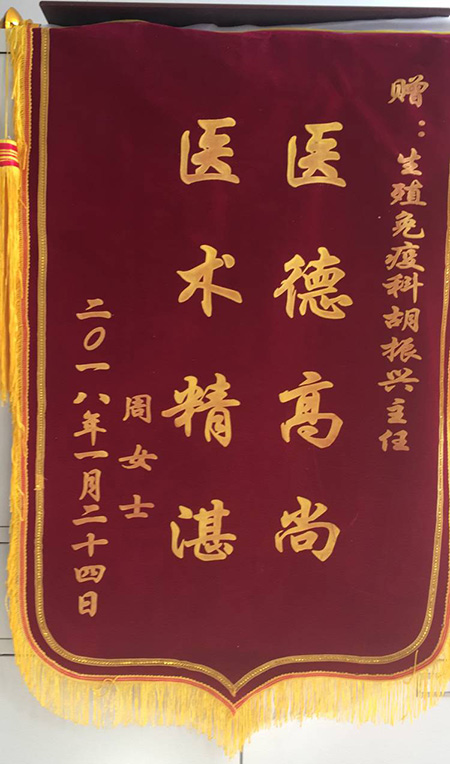 赠：生殖免疫科胡振兴主任
医德高尚
医术精湛
周女士
二〇一八年一月二十四日